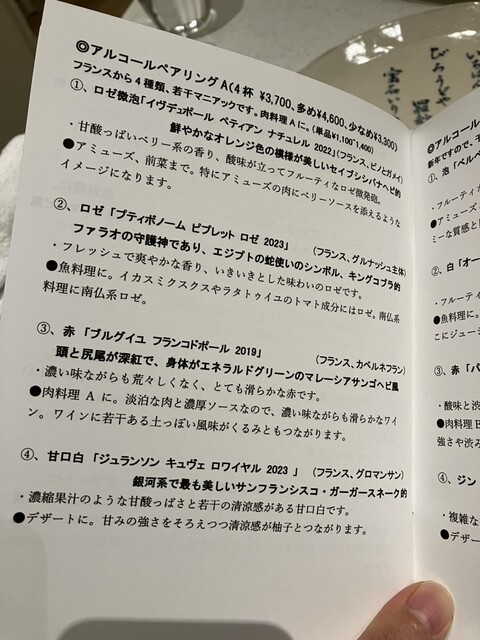 ◎アルコールペアリングA(4杯 ¥3,700、多め¥4,600、少なめ¥3,300)
フランスから4種類、若干マニアックです。肉料理Aに。(単品¥1,100~1,400)
①、ロゼ微泡「イヴデュポール ペティアン ナチュレル 2022」(フランス、ピノとガメイ)
鮮やかなオレンジ色の模様が美しいセイブシシバナヘビ的
・甘酸っぱいベリー系の香り、酸味が立ってフルーティなロゼ微発砲。
●アミューズ、前菜まで。特にアミューズの肉にベリーソースを添えるような
イメージになります。
②、ロゼ「プティボノーム ピブレット ロゼ 2023」 (フランス、グルナッシュ主体)
ファラオの守護神であり、エジプトの蛇使いのシンボル、キングコブラ的
・フレッシュで爽やかな香り、いきいきとした味わいのロゼです。
●魚料理に。イカスミクスクスやラタトゥイユのトマト成分にはロゼ。南仏系
料理に南仏系ロゼ。
③、赤「ブルグイユ フランコドポール 2019」 (フランス、カベルネフラン)
頭と尻尾が深紅で、身体がエネラルドグリーンのマレーシアサンゴヘビ風
・濃い味ながらも荒々しくなく、とても滑らかな赤です。
●肉料理 A に。淡泊な肉と濃厚ソースなので、濃い味ながらも滑らかなワイ
ン。ワインに若干ある土っぽい風味がくるみともつながります。
④、甘口白「ジュランソン キュヴェ ロワイヤル 2023 」 (フランス、グロマンサン)
銀河系で最も美しいサンフランシスコ・ガーガースネーク的
・濃縮果汁のような甘酸っぱさと若干の清涼感がある甘口白です。
●デザートに。甘みの強さをそろえつつ清涼感が柚子とつながります。
◎アルコール
新年ですので、
①、泡「ベルベ
・フルーティ
●アミューズ
ミーな質感と
②、白「オー
・フルーティ
●魚料理に。
こにジュー
③、赤「パ
・酸味と渋
●肉料理B
強さや渋み
④、ジン
・複雑な
●デザー